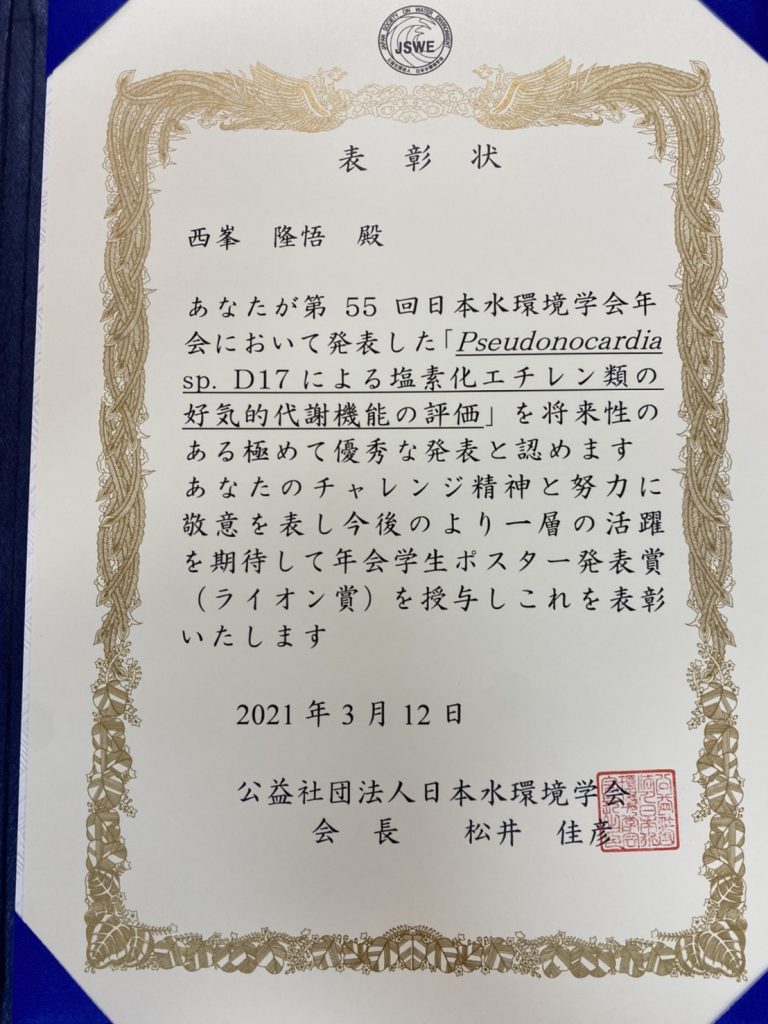 JAPAN SOCIETY ON WATER ENVIRONMENT
JSWE
表彰状
西峯 隆悟 殿
あなたが第 55 回日本水環境学会年
会において発表した「Pseudonocardia
sp. D17 による塩素化エチレン類の
好気的代謝機能の評価」を将来性の
ある極めて優秀な発表と認めます
あなたのチャレンジ精神と努力に
敬意を表し今後のより一層の活躍
を期待して年会学生ポスター発表賞
（ライオン賞）を授与しこれを表彰
いたします
2021 年 3 月 12 日
公益社団法人日本水環境学会
会 長 松井 佳彦